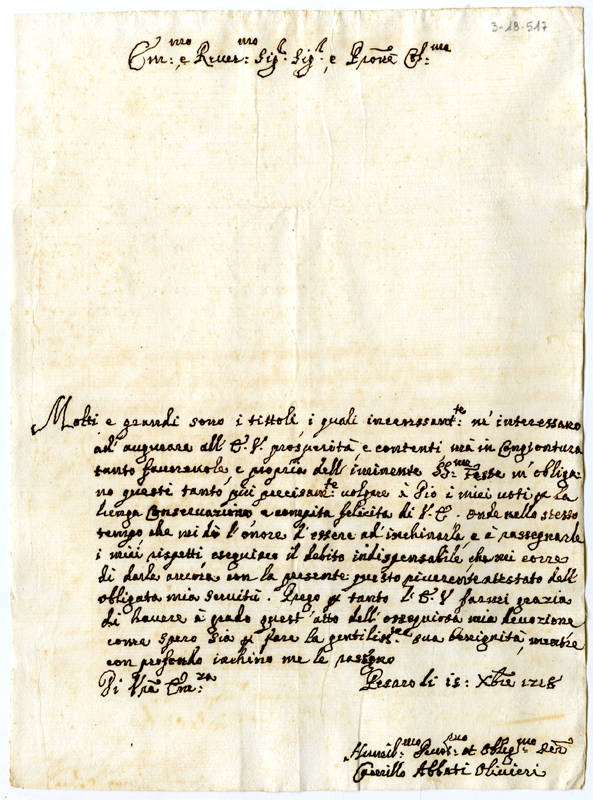 3-18-517
Em:mo e Reuer:mo Sig:r Sig:r e Prone Col:mo
Molti e grandi sono i tittoli i quali incessant:te m'interessano
ad'augurare all'E.V. prosperità, e contenti mà in Congiontura
tanto fauoreuole, e propria dell'iminente SS:me Feste m'obliga-
no questi tanto più precisam:te volgere à Dio i miei voti p la
lunga Conseruazione e compita felicità di V.E. onde nello stesso
tempo che mi dò l'onore d'essere ad'inchinarla e à rassegnarle
i miei rispetti eseguisco il debito indispensabile che mi corre
di darle ancora con la presente questo riuerente attestato dell'
obligata mia Seruitù. Prego p tanto l'E.V. farmi grazia
di hauere à grado quest'atto dell'ossequiosa mia deuozione
come spero già p fare la gentiliss:ma sua benignità, mentre
con profondo inchino me le rassegno
Di Vra Em:za Pesaro li 15: Xbre 1718
Humil:mo Deuot:mo et Oblig:mo Serre
Camillo Abbati Oliuieri